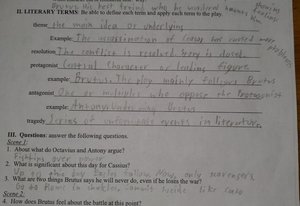 Brutus his best being who he murdered
II. LITERARY TERMS: Be able to define each term and apply each term to the play.
theme: the main idea or underlying
Example: The assassination of Ceasar has caused more problems
resolution The conflict is resolved. Story is closed.
protagonist Central Character or leading figure
example: Brutus. The play mainly follows Brutus
antagonist One or multiple who oppose the Protagonist
example: Antony
tragedy Series of unfortunate events in literature.
III. Questions: answer the following questions.
Scene 1:
1. About what do Octavius and Antony argue?
Fighting over power
2. What is significant about this day for Cassius?
Up on this day Eagles follow. Now, only scavengers
3. What are two things Brutus says he will never do, even if he loses the war?
Go to Rome in shackles, commit suicide like Cato
Scene 2:
4. How does Brutus feel about the battle at this point?